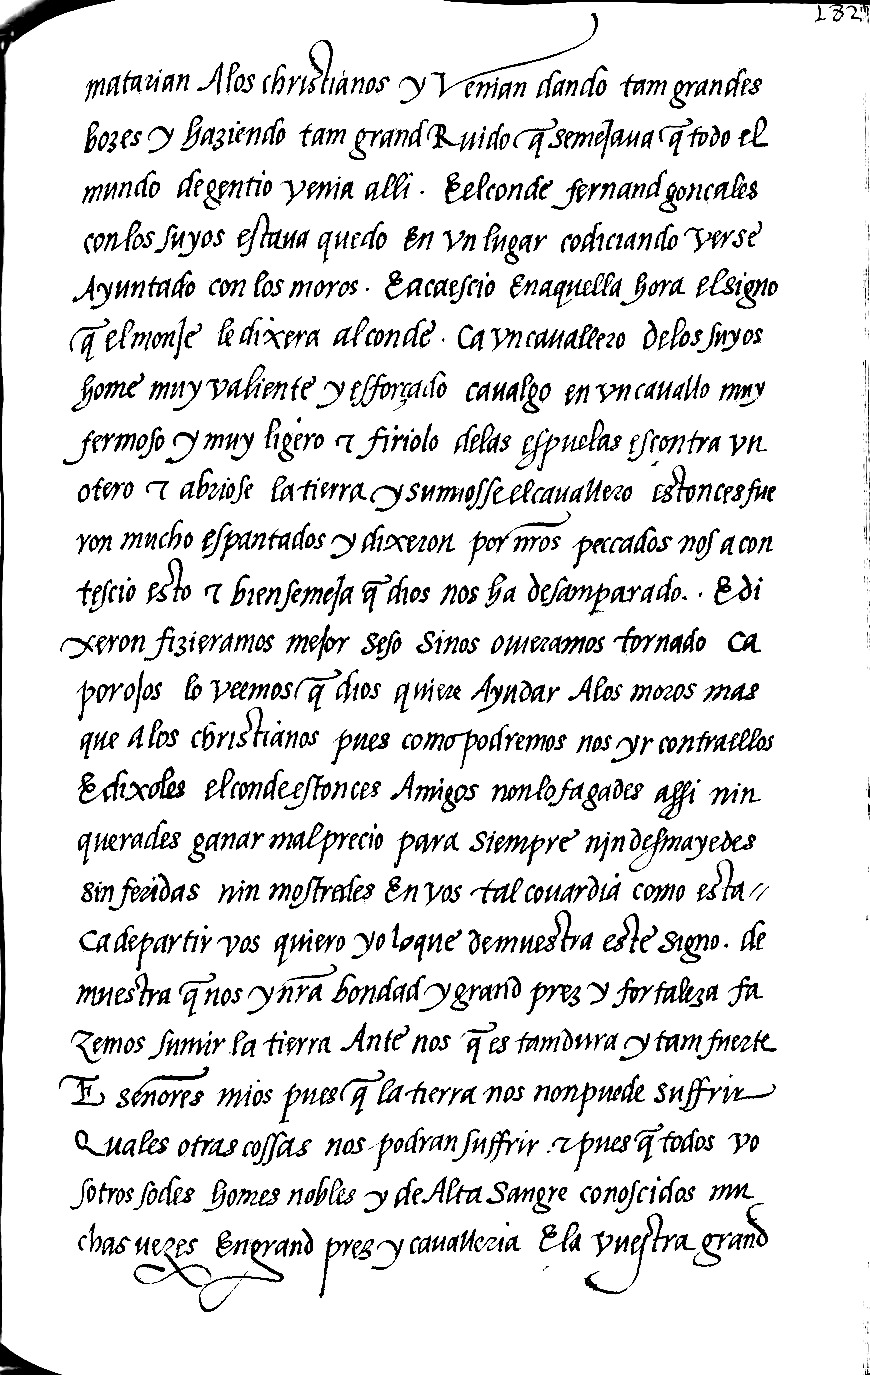 182
matarian A los christianos y Venian dando tam grandes
bozes y haziendo tam grand Ruido q̃ semejaua q̃ todo el
mundo de gentio venia alli . E el conde fernand goncales
con los suyos estaua quedo en vn lugar codiciando verse
Ayuntado con los moros . E acaescio en aquella hora el signo
q̃ el monje le dixera al conde . Ca vn cauallero de los suyos
home muy valiente y esforçado caualgo en vn cauallo muy
fermoso y muy ligero ⁊ firiolo de las espuelas escontra vn
otero ⁊ abriose la tierra y sumiosse el cauallero estonces fue
ron mucho espantados y dixeron por nr̃os peccados nos a con
tescio esto ⁊ bien semeja q̃ dios nos ha desamparado . . E di
xeron fizieramos mejor seso si nos ouieramos tornado ca
por ojos lo veemos q̃ dios quiere Ayudar A los moros mas
que A los christianos pues como podremos nos yr contra ellos
E dixoles el conde estonces Amigos non lo fagades assi nin
querades ganar mal precio para siempre nin desmayedes
sin feridas nin mostredes en vos tal couardia como esta //
Ca departir vos quiero yo lo que demuestra este signo . de
muestra q̃ nos y nr̃a bondad y grand prez y fortaleza fa
zemos sumir la tierra Ante nos q̃ es tam dura y tam fuerte
E señores mios pues q̃ la tierra nos non puede suffrir
Quales otras cossas nos podran suffrir . ⁊ pues q̃ todos vo
sotros sodes homes nobles y de Alta sangre conoscidos mu
chas vezes En grand prez y caualleria E la vuestra grand